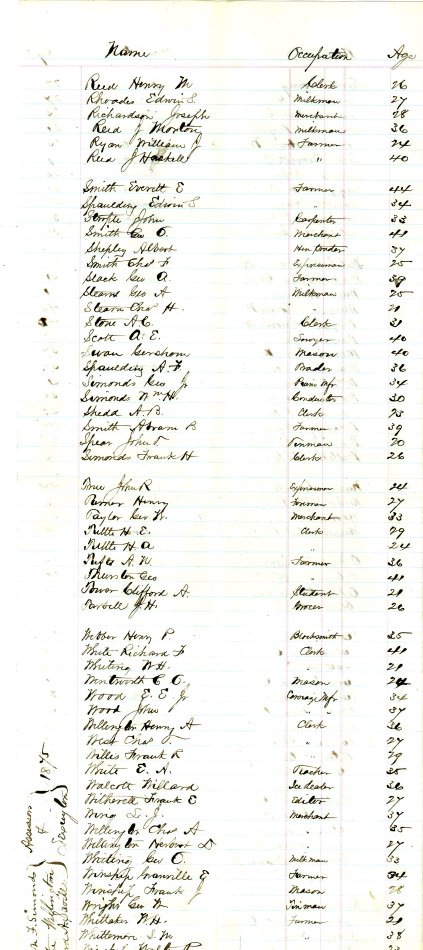 Name Occupation Age
Reed Henry M Clerk 26
Rhoades Edwin S. Milkman 27
Richardson Joseph Merchant 28
Reid J Monton Milkman 36
Ryan William J Farmer 24
Reed J Haskell " 40
Smith Everett E Farmer 44
Spaulding Edwin S " 34
John Carpenter 33
Smith Geo O. Merchant 41
Shepley Albert 37
Smith Chas F Expressman 25
Slack Geo A. Farmer 39
Stearns Geo A Milkman 25
Stearn Chas H. " 21
Stone A C. Clerk 31
Scott A. E. Lawyer 40
Swan Gershom Mason 40
Spaulding A F. Trader 36
Simonds Geo Jr Piano Mfr 34
Simonds Wm H. Conductor 30
Shedd A. B. Clerk 23
Smith Abram B Farmer 39
Spear John T. Tinman 20
Simonds Frank H Clerk 26
John R Expressman 24
Turner Henry Foreman 27
Taylor Geo W. Merchant 33
Tuttle H E. Clerk 29
Tuttle H A " 24
A. W. Farmer 36
Thurston Geo " 41
Tower Clifford A. Student 21
Tarbell J. H. Grocer 26
Webber Henry P. Blacksmith 35
White Richard F Clerk 41
Whiting W H. " 21
Wentworth C O. Mason 24
Wood E. E. Jr Carriage Mfr 34
Wood John " " 37
Wellington Henry A Clerk 36
West Chas T. " 27
Willis Frank R " 29
White E. A. Teacher 35
Walcott Willard Ice dealer 36
Witherell Frank E Editor 27
Wing D. J. Merchant 37
Wellington Chas A " 35
Wellington Herbert L " 27
Whiting Geo O. Milkman 53
Winship Granville E Farmer 34
Winship Frank J Mason 28
Wright Geo W. Tinman 37
Whittaker W. H. Farmer 21
Whittemore S. M " 38
Assessors of Lexington 1875
F. Simonds